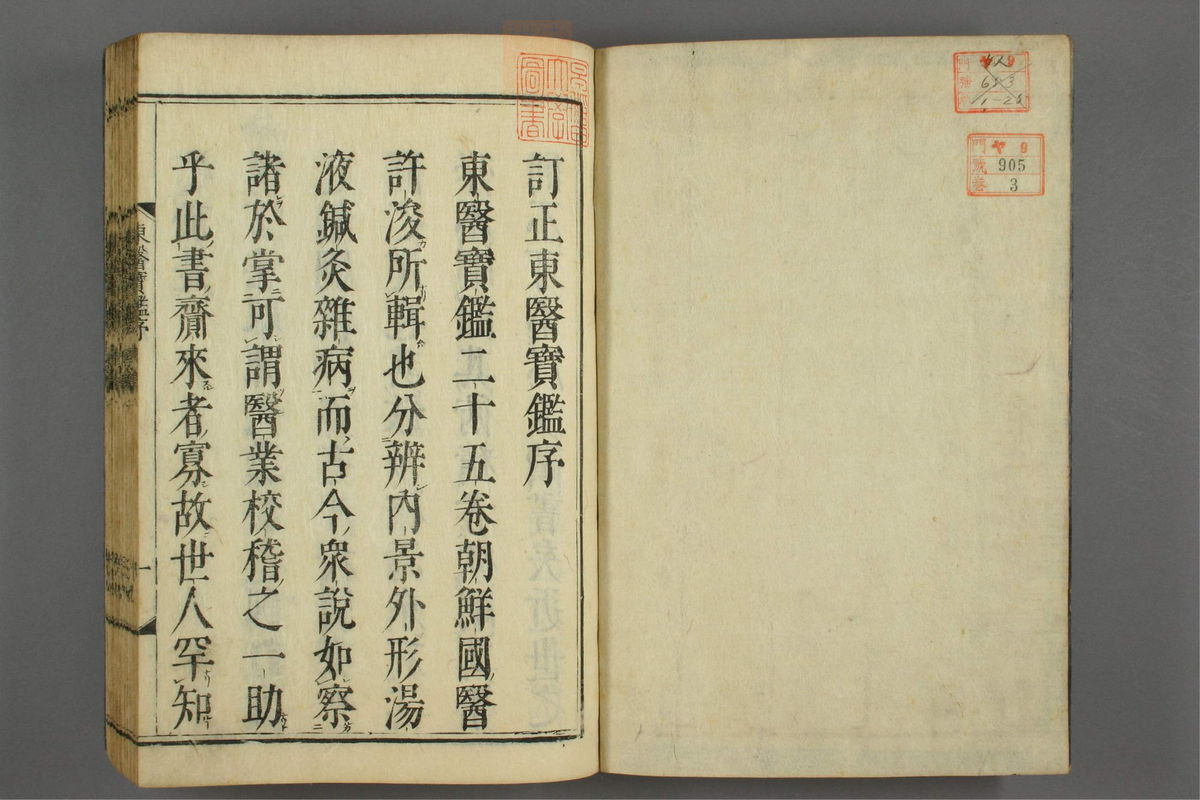 訂正東醫寶鑑序
東醫寶鑑二十五卷朝鮮國醫
許浚所輯也分辨內景外形湯
液鍼灸雜病而古今衆說如察
諸於掌可謂醫業校稽之一助
乎此書齎來者寡故世人罕知
東醫寶鑑序
一
圖書
ヤ9
653
1-25
門 ヤ 9
號 905
卷 3